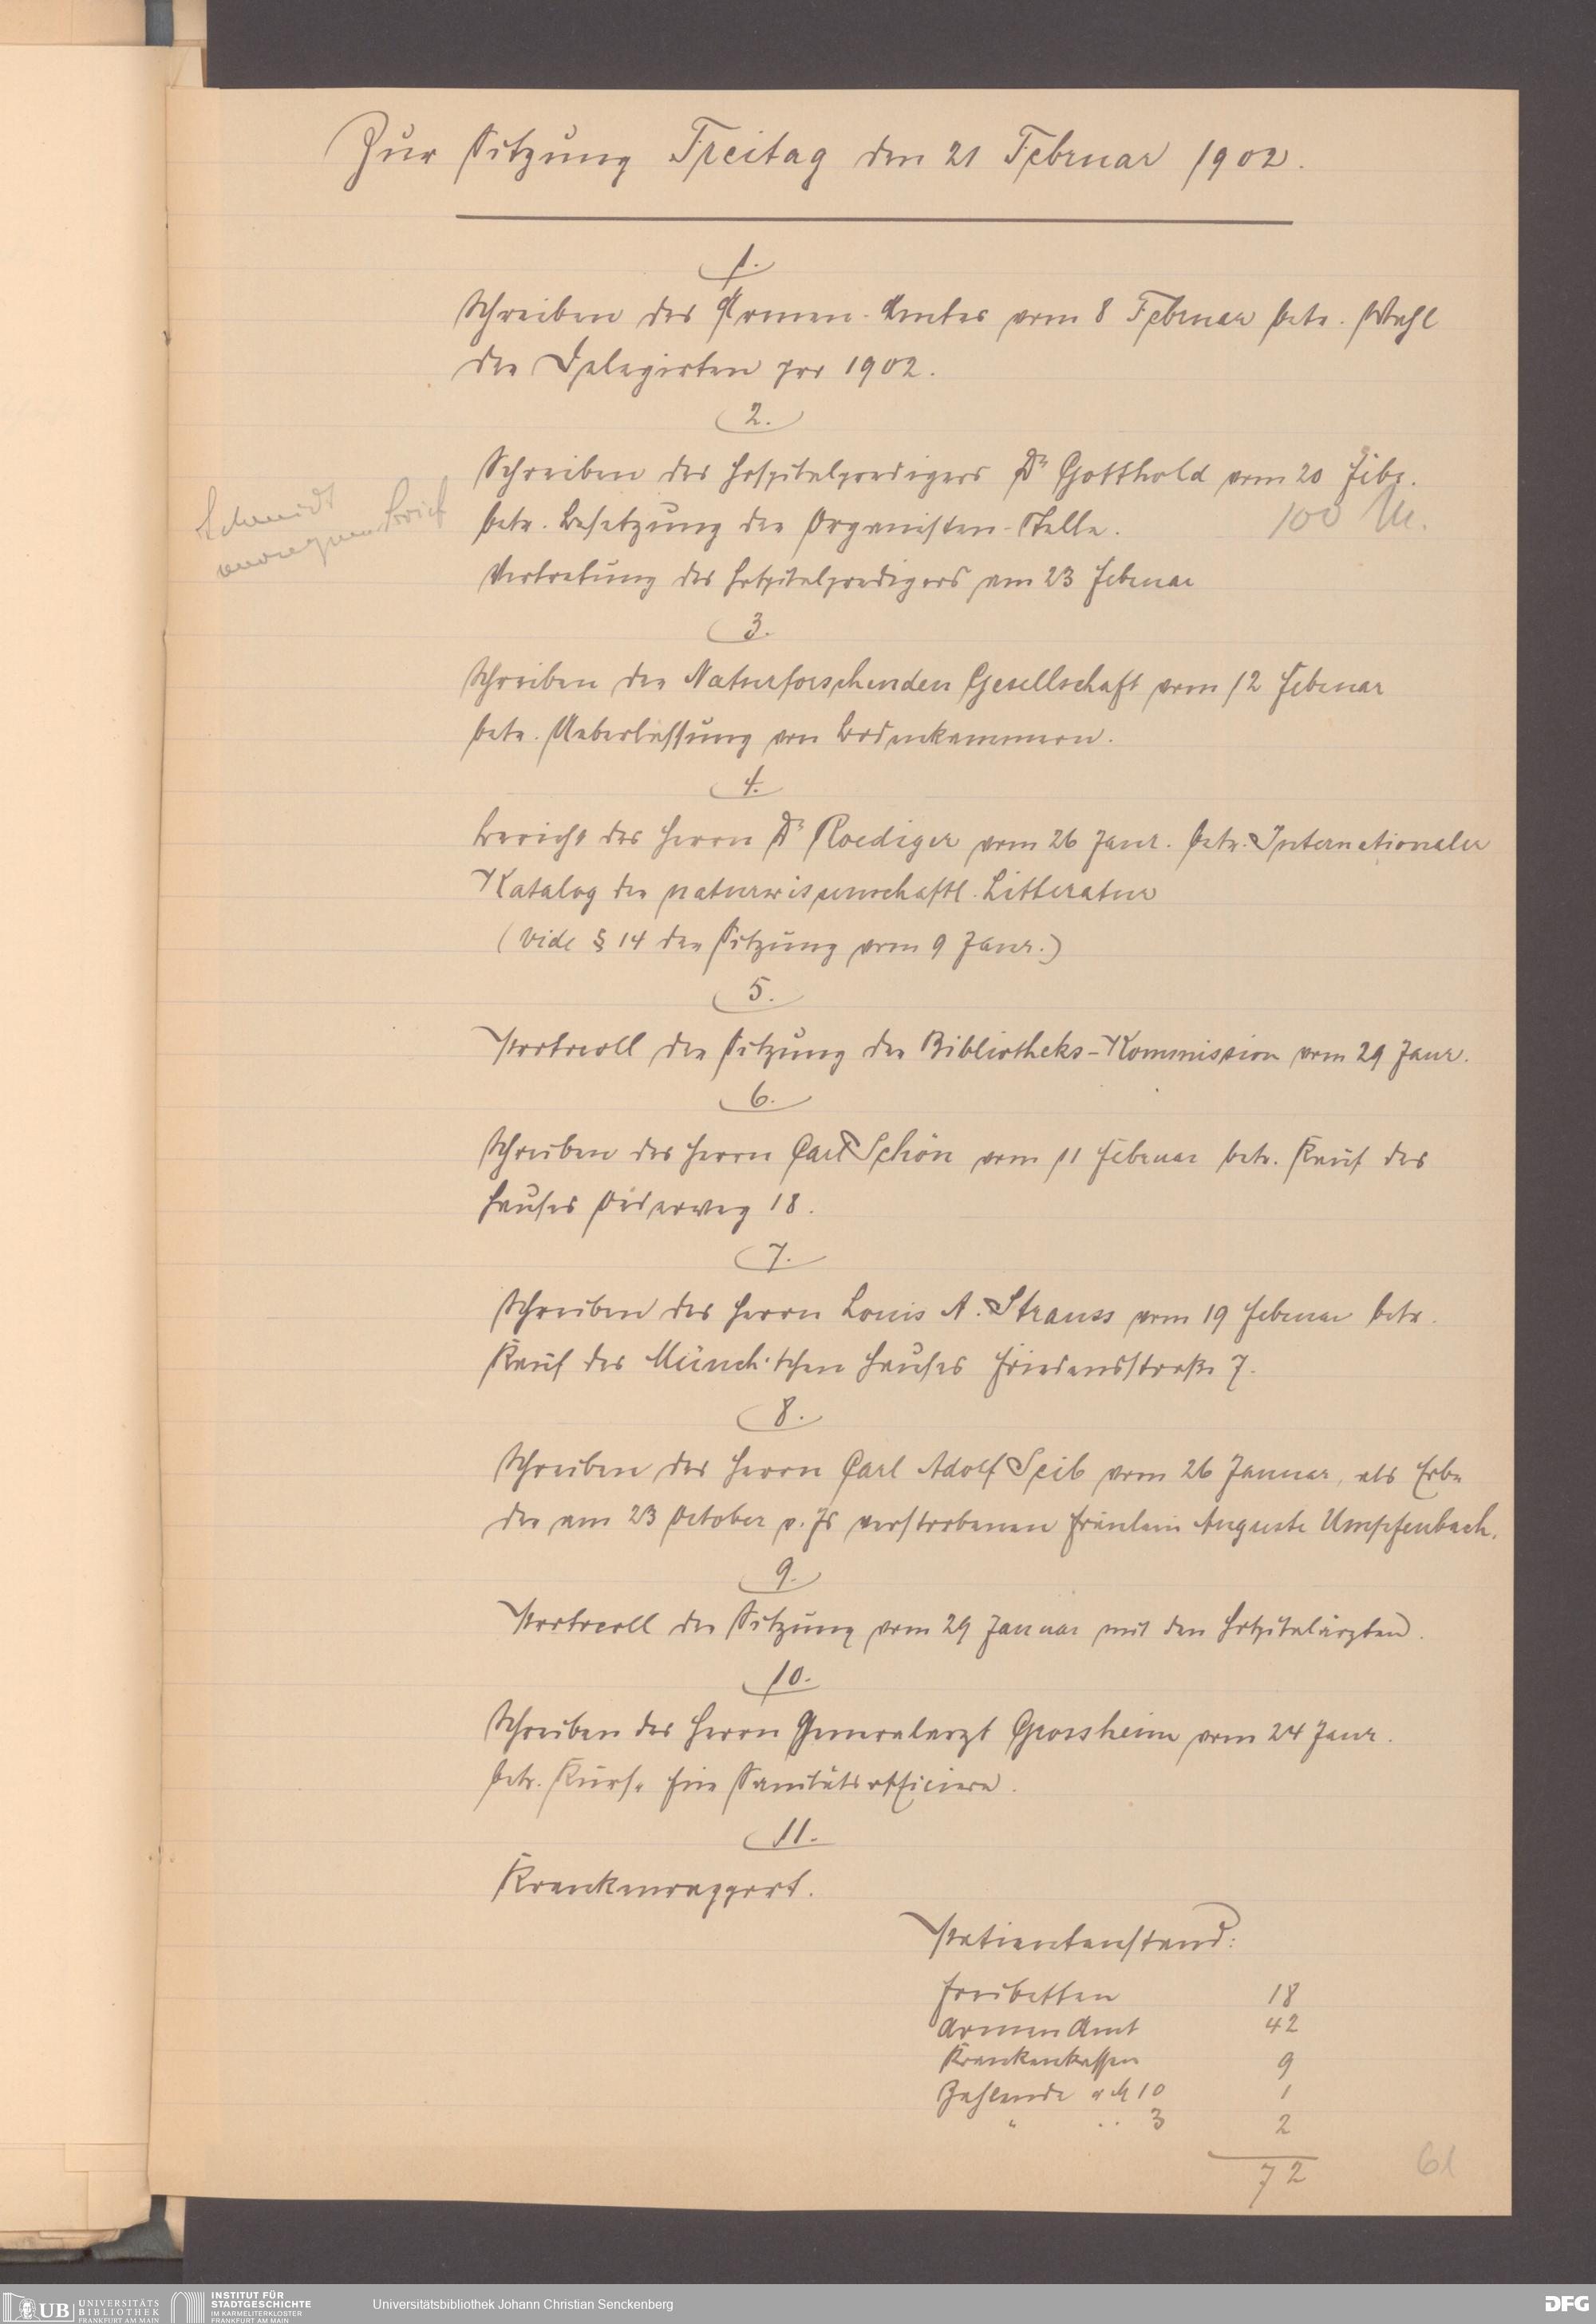 Zur Sitzung Freitag den 21 Februar 1902.
1.
Schreiben des Armen-Amtes vom 8 Februar betr. Wahl
der Delegirten pro 1902.
2.
Schreiben des Hospitalpredigers Dr Gotthold vom 20 Febr.
betr. Besetzung der Organisten-Stelle. 100 M.
Schmidt
Brief
Vertretung des Hospitalpredigers am 23 Februar
3.
Schreiben der Naturforschenden Gesellschaft vom 12 Februar
betr. Ueberlassung von Bodenkammern.
4.
Bericht des Herrn Dr Roediger vom 26 Janr. betr. Internationaler
Katalog der naturwissenschaftl. Litteratur
(vide § 14 der Sitzung vom 9 Janr.)
5.
Protocoll der Sitzung der Bibliotheks-Kommission vom 29 Janr.
6.
Schreiben des Herrn Carl Schön vom 11 Februar betr. Kauf des
Hauses Oederweg 18.
7.
Schreiben des Herrn Louis A. Strauss vom 19 Februar betr.
Kauf des Münch'schen Hauses Friedensstraße 7.
8.
Schreiben des Herrn Carl Adolf Seib vom 26 Januar, als Erbe
der am 23 October v. Js verstorbenen Fräulein Auguste Umpfenbach.
9.
Protocoll der Sitzung vom 29 Januar mit den Hospitalärzten.
10.
Schreiben des Herrn Generalarzt Grossheim vom 24 Janr.
betr. Kurse für Sanitätsofficiere.
11.
Krankenrapport.
Patientenstand:
Freibetten 18
Armen Amt 42
Krankenkassen 9
Zahlende a M 10 1
" " 3 2
72
61
UB UNIVERSITÄTS BIBLIOTHEK FRANKFURT AM MAIN
INSTITUT FÜR STADTGESCHICHTE IM KARMELITERKLOSTER FRANKFURT AM MAIN
Universitätsbibliothek Johann Christian Senckenberg
DFG